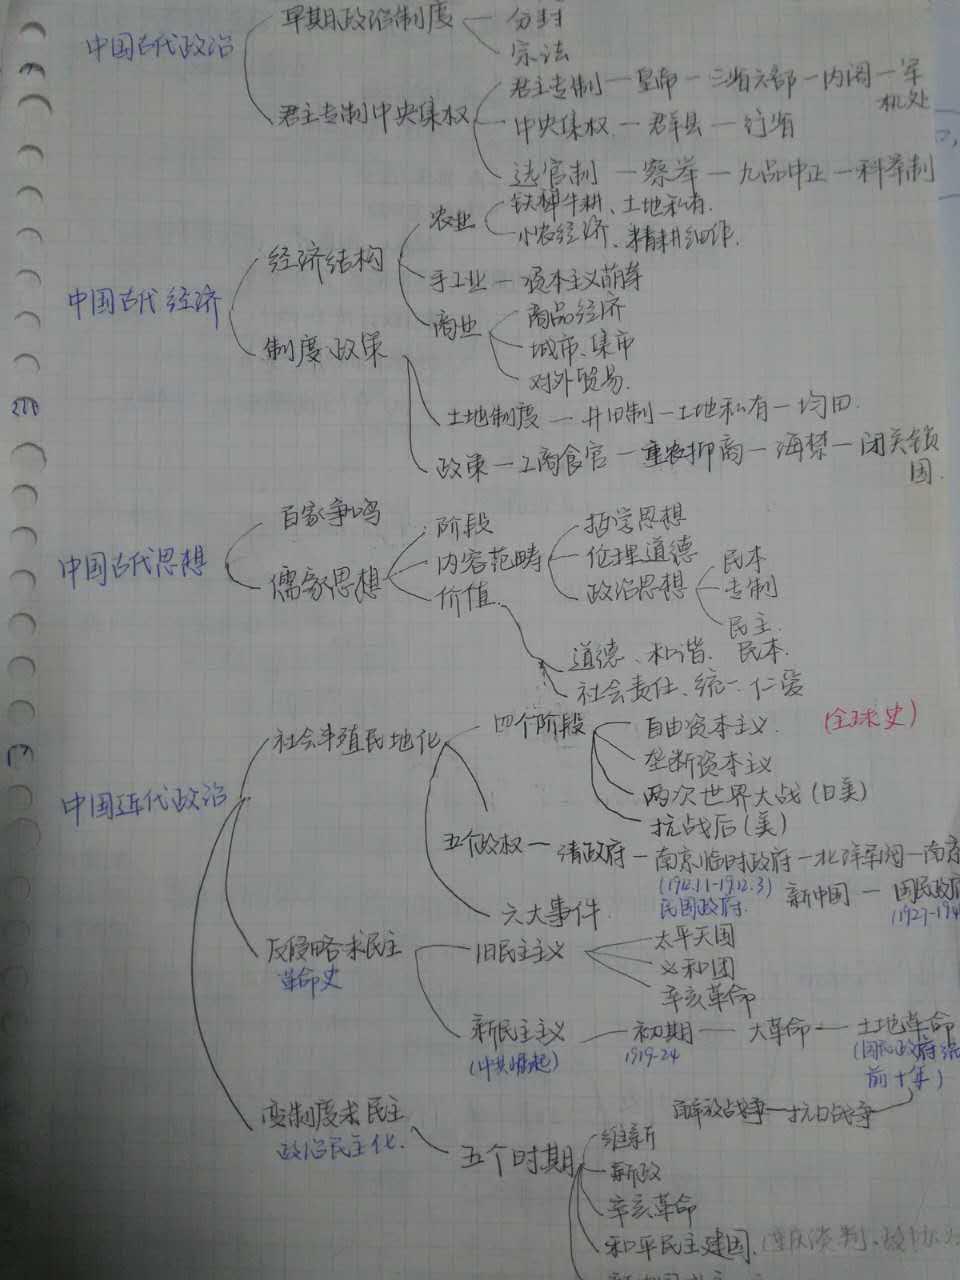 中国古代政治
早期政治制度
分封
宗法
君主专制中央集权
君主专制一皇帝一三省六部一内阁一军
机处
中央集权一君羊县一行省
选官制一察举一九品中正一科举制
中国古代经济
经济结构
农业
铁犁牛耕、土地私有.
小农经济、精耕细作.
手工业一资本主义萌芽
商业
商品经济
城市、集市
对外贸易.
制度、政策
土地制度一井田制一土地私有一均田.
政策一工商食官一重农抑商一海禁一闭关锁
国.
中国古代思想
百家争鸣
儒家思想
阶段
内容范畴
哲学思想
伦理道德
政治思想
民本
专制
民主.
价值.
道德、和谐、民本.
社会责任、统一、仁爱
中国近代政治
社会半殖民地化
四个阶段
自由资本主义.
(全球史)
垄断资本主义
两次世界大战(日美)
抗战后(美)
五个政权一清政府一南京临时政府一北洋军阀一南京
(1912.1-1912.3)
民国政府.
新中国一国民政府
六大事件.
反侵略求民主
革命史
旧民主主义
太平天国
义和团
辛亥革命
新民主主义一初期一大革命一土地革命
(中共崛起)
1919-24
(国民政府
前十年)
解放战争一抗日战争
变制度求民主
政治民主化.
五个时期
维新
新政
辛亥革命
和平民主建国.(重庆谈判、政协